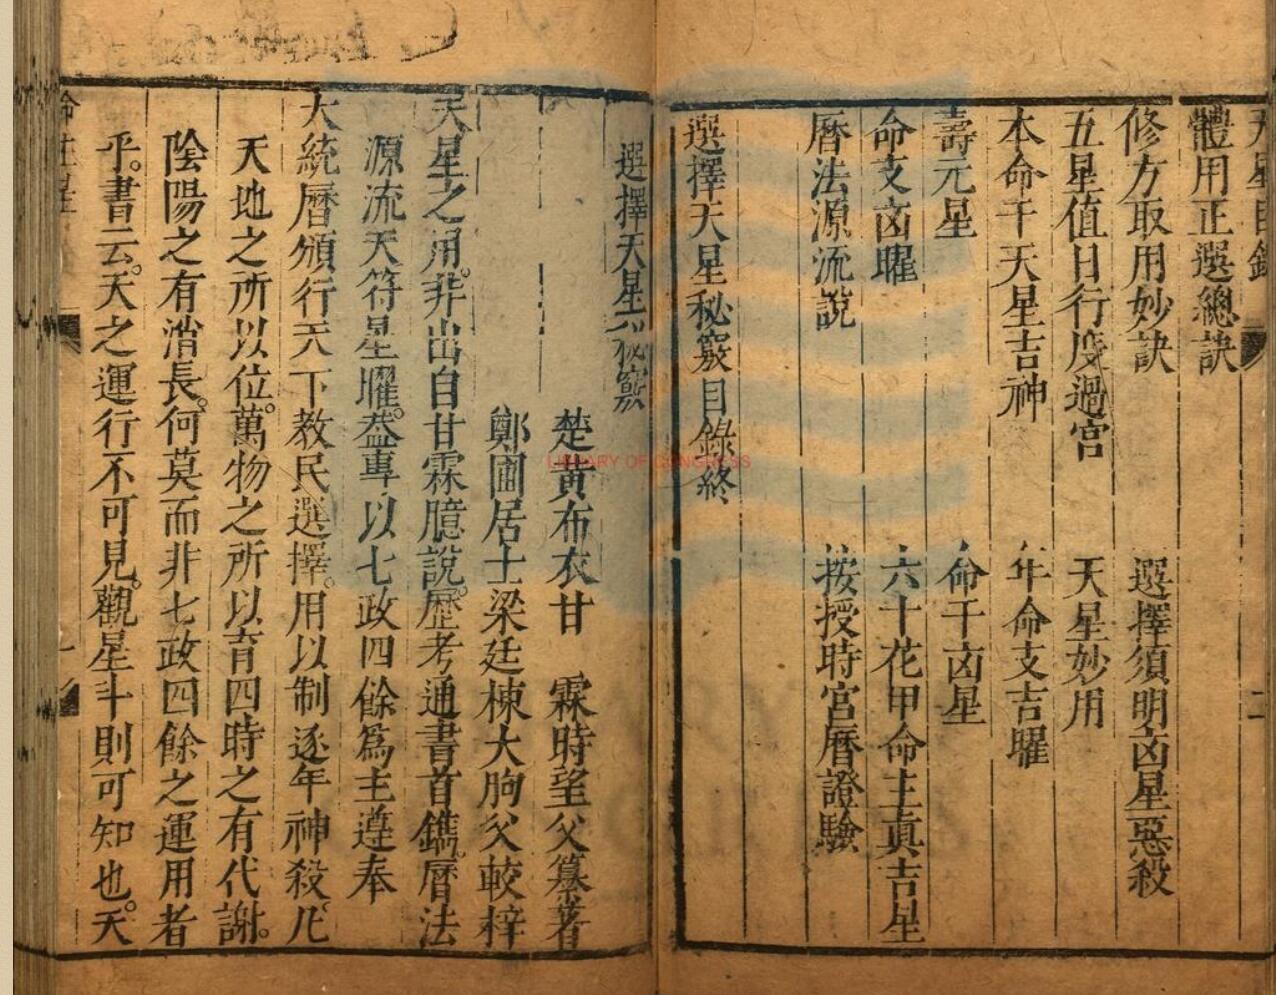 體用正選總訣
修方取用妙訣　選擇須明凶星惡殺
五星值日行度過宮　天星妙用
本命干天星吉神　年命支吉曜
壽元星　命干凶星
命支凶曜　六十花甲命主真吉星
曆法源流說　按授時宮曆證驗
選擇天星秘竅目錄終
選擇天星秘竅
楚黃布衣甘　霖時望父纂著
鄭圃居士梁廷棟大朐父較梓
天星之用。非出自甘霖臆說。歷考通書首鐫。曆法
源流天符星曜。葢專以七政四餘爲主遵奉
大統曆頒行天下教民選擇。用以制逐年神殺。凡
天地之所以位。萬物之所以育四時之有代謝。
陰陽之有消長。何莫而非七政四餘之運用者
乎。書云。天之運行不可見。觀星斗則可知也。天
LIBRARY OF CONGRESS